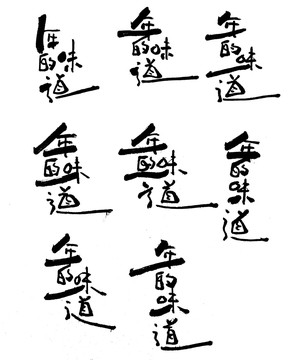 年的味道
年的味道
年的味道
年的味道
年的味道
年的味道
年的味道
年的味道